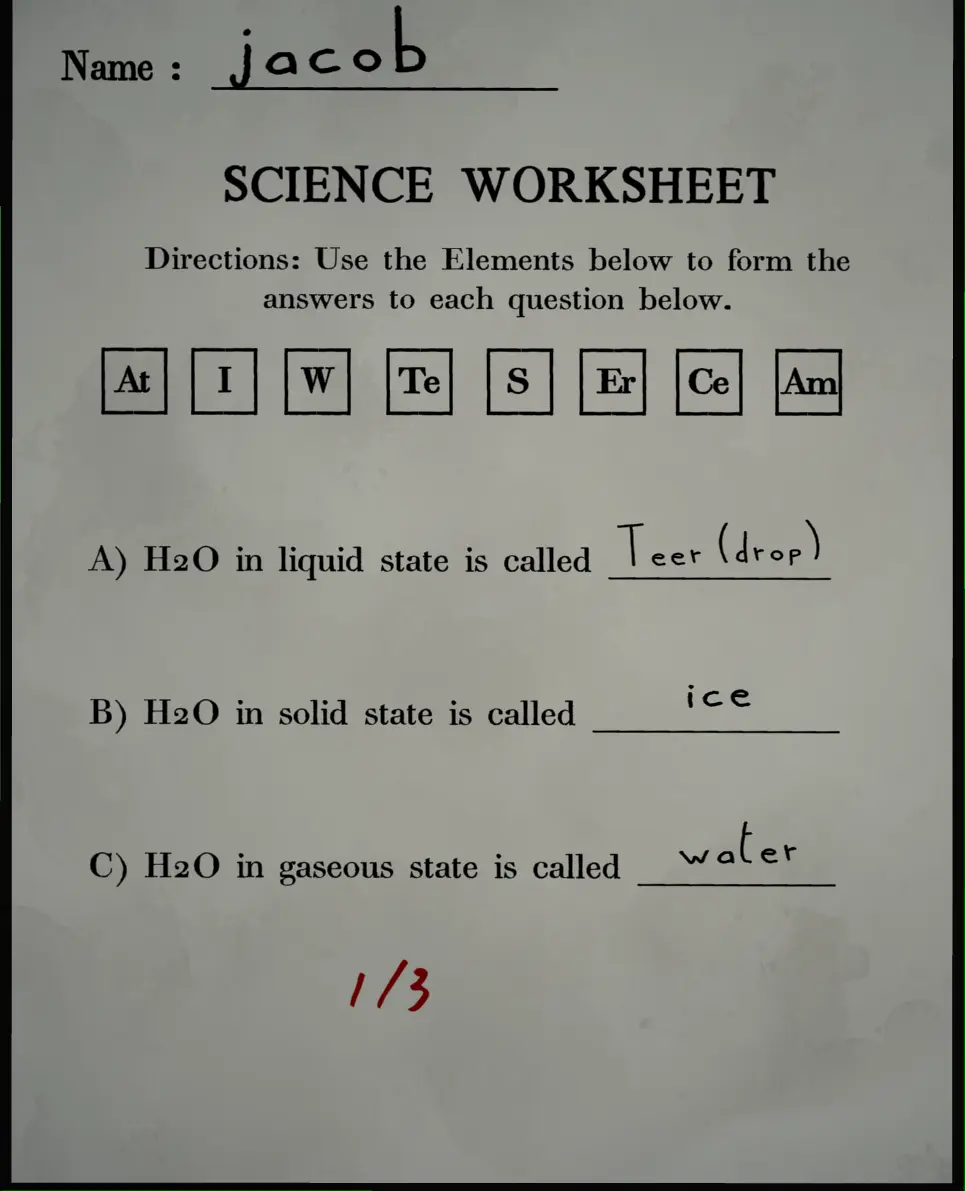 Name : jacob
SCIENCE WORKSHEET
Directions: Use the Elements below to form the
answers to each question below.
At I W Te S Er Ce Am
A) H2O in liquid state is called Teer (drop)
B) H2O in solid state is called ice
C) H2O in gaseous state is called water
1/3